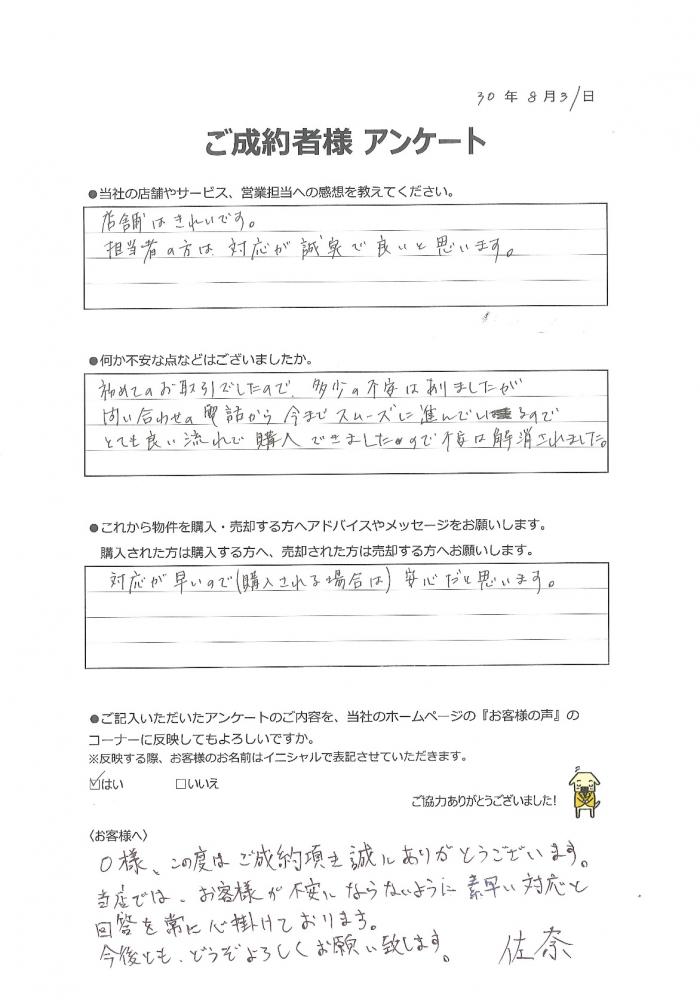 30年8月31日
ご成約者様 アンケート
●当社の店舗やサービス、営業担当への感想を教えてください。
店舗はきれいです。
担当者の方は、対応が誠実で良いと思います。
●何か不安な点などはございましたか。
初めてのお取引でしたので、多少の不安はありましたが
問い合わせの電話から今までスムーズに進んでいるので
とても良い流れで購入できましたので不安は解消されました。
●これから物件を購入・売却する方へアドバイスやメッセージをお願いします。
購入された方は購入する方へ、売却された方は売却する方へお願いします。
対応が早いので(購入される場合は)安心だと思います。
●ご記入いただいたアンケートのご内容を、当社のホームページの『お客様の声』の
コーナーに反映してもよろしいですか。
※反映する際、お客様のお名前はイニシャルで表記させていただきます。
☑はい □いいえ
ご協力ありがとうございました!
〈お客様へ〉
O様、この度はご成約頂き誠にありがとうございます。
当店では、お客様が不安にならないように素早い対応と
回答を常に心掛けております。
今後とも、どうぞよろしくお願い致します。 佐奈